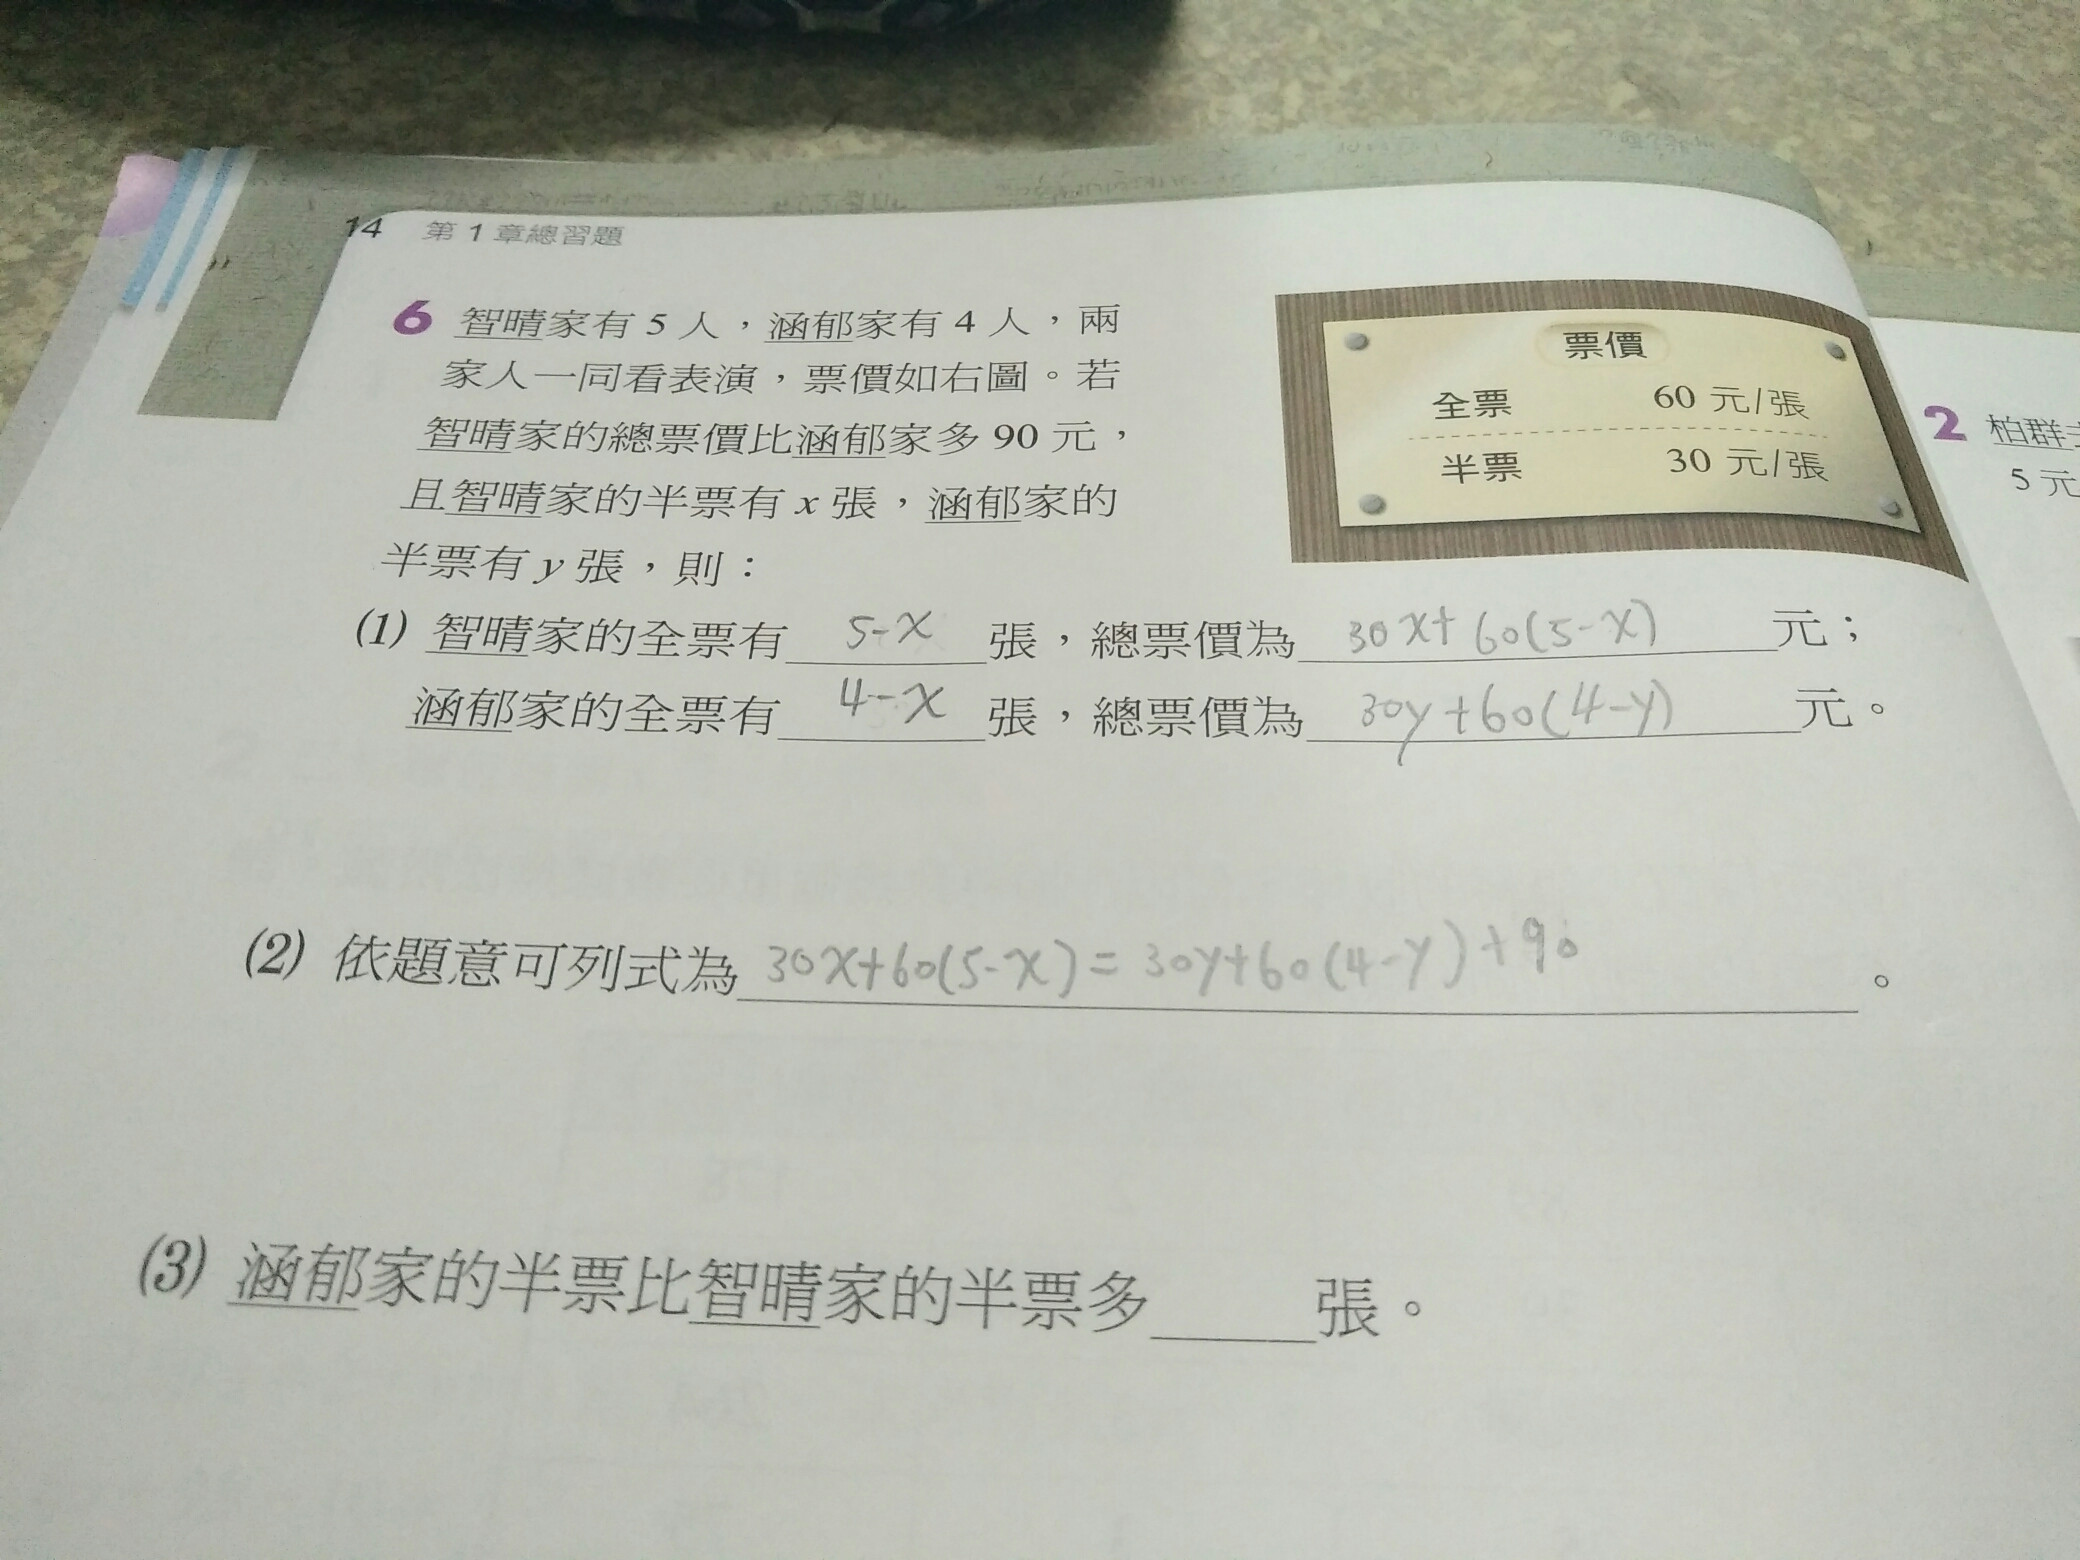 14 第 1 章總習題
6 智晴家有 5 人，涵郁家有 4 人，兩
家人一同看表演，票價如右圖。若
智晴家的總票價比涵郁家多 90 元，
且智晴家的半票有 x 張，涵郁家的
半票有 y 張，則：
票價
全票 60 元/張
半票 30 元/張
(1) 智晴家的全票有 5-x 張，總票價為 30x+60(5-x) 元；
涵郁家的全票有 4-x 張，總票價為 30y+60(4-y) 元。
(2) 依題意可列式為 30x+60(5-x)=30y+60(4-y)+90 。
(3) 涵郁家的半票比智晴家的半票多____張。
2 柏群
5 元